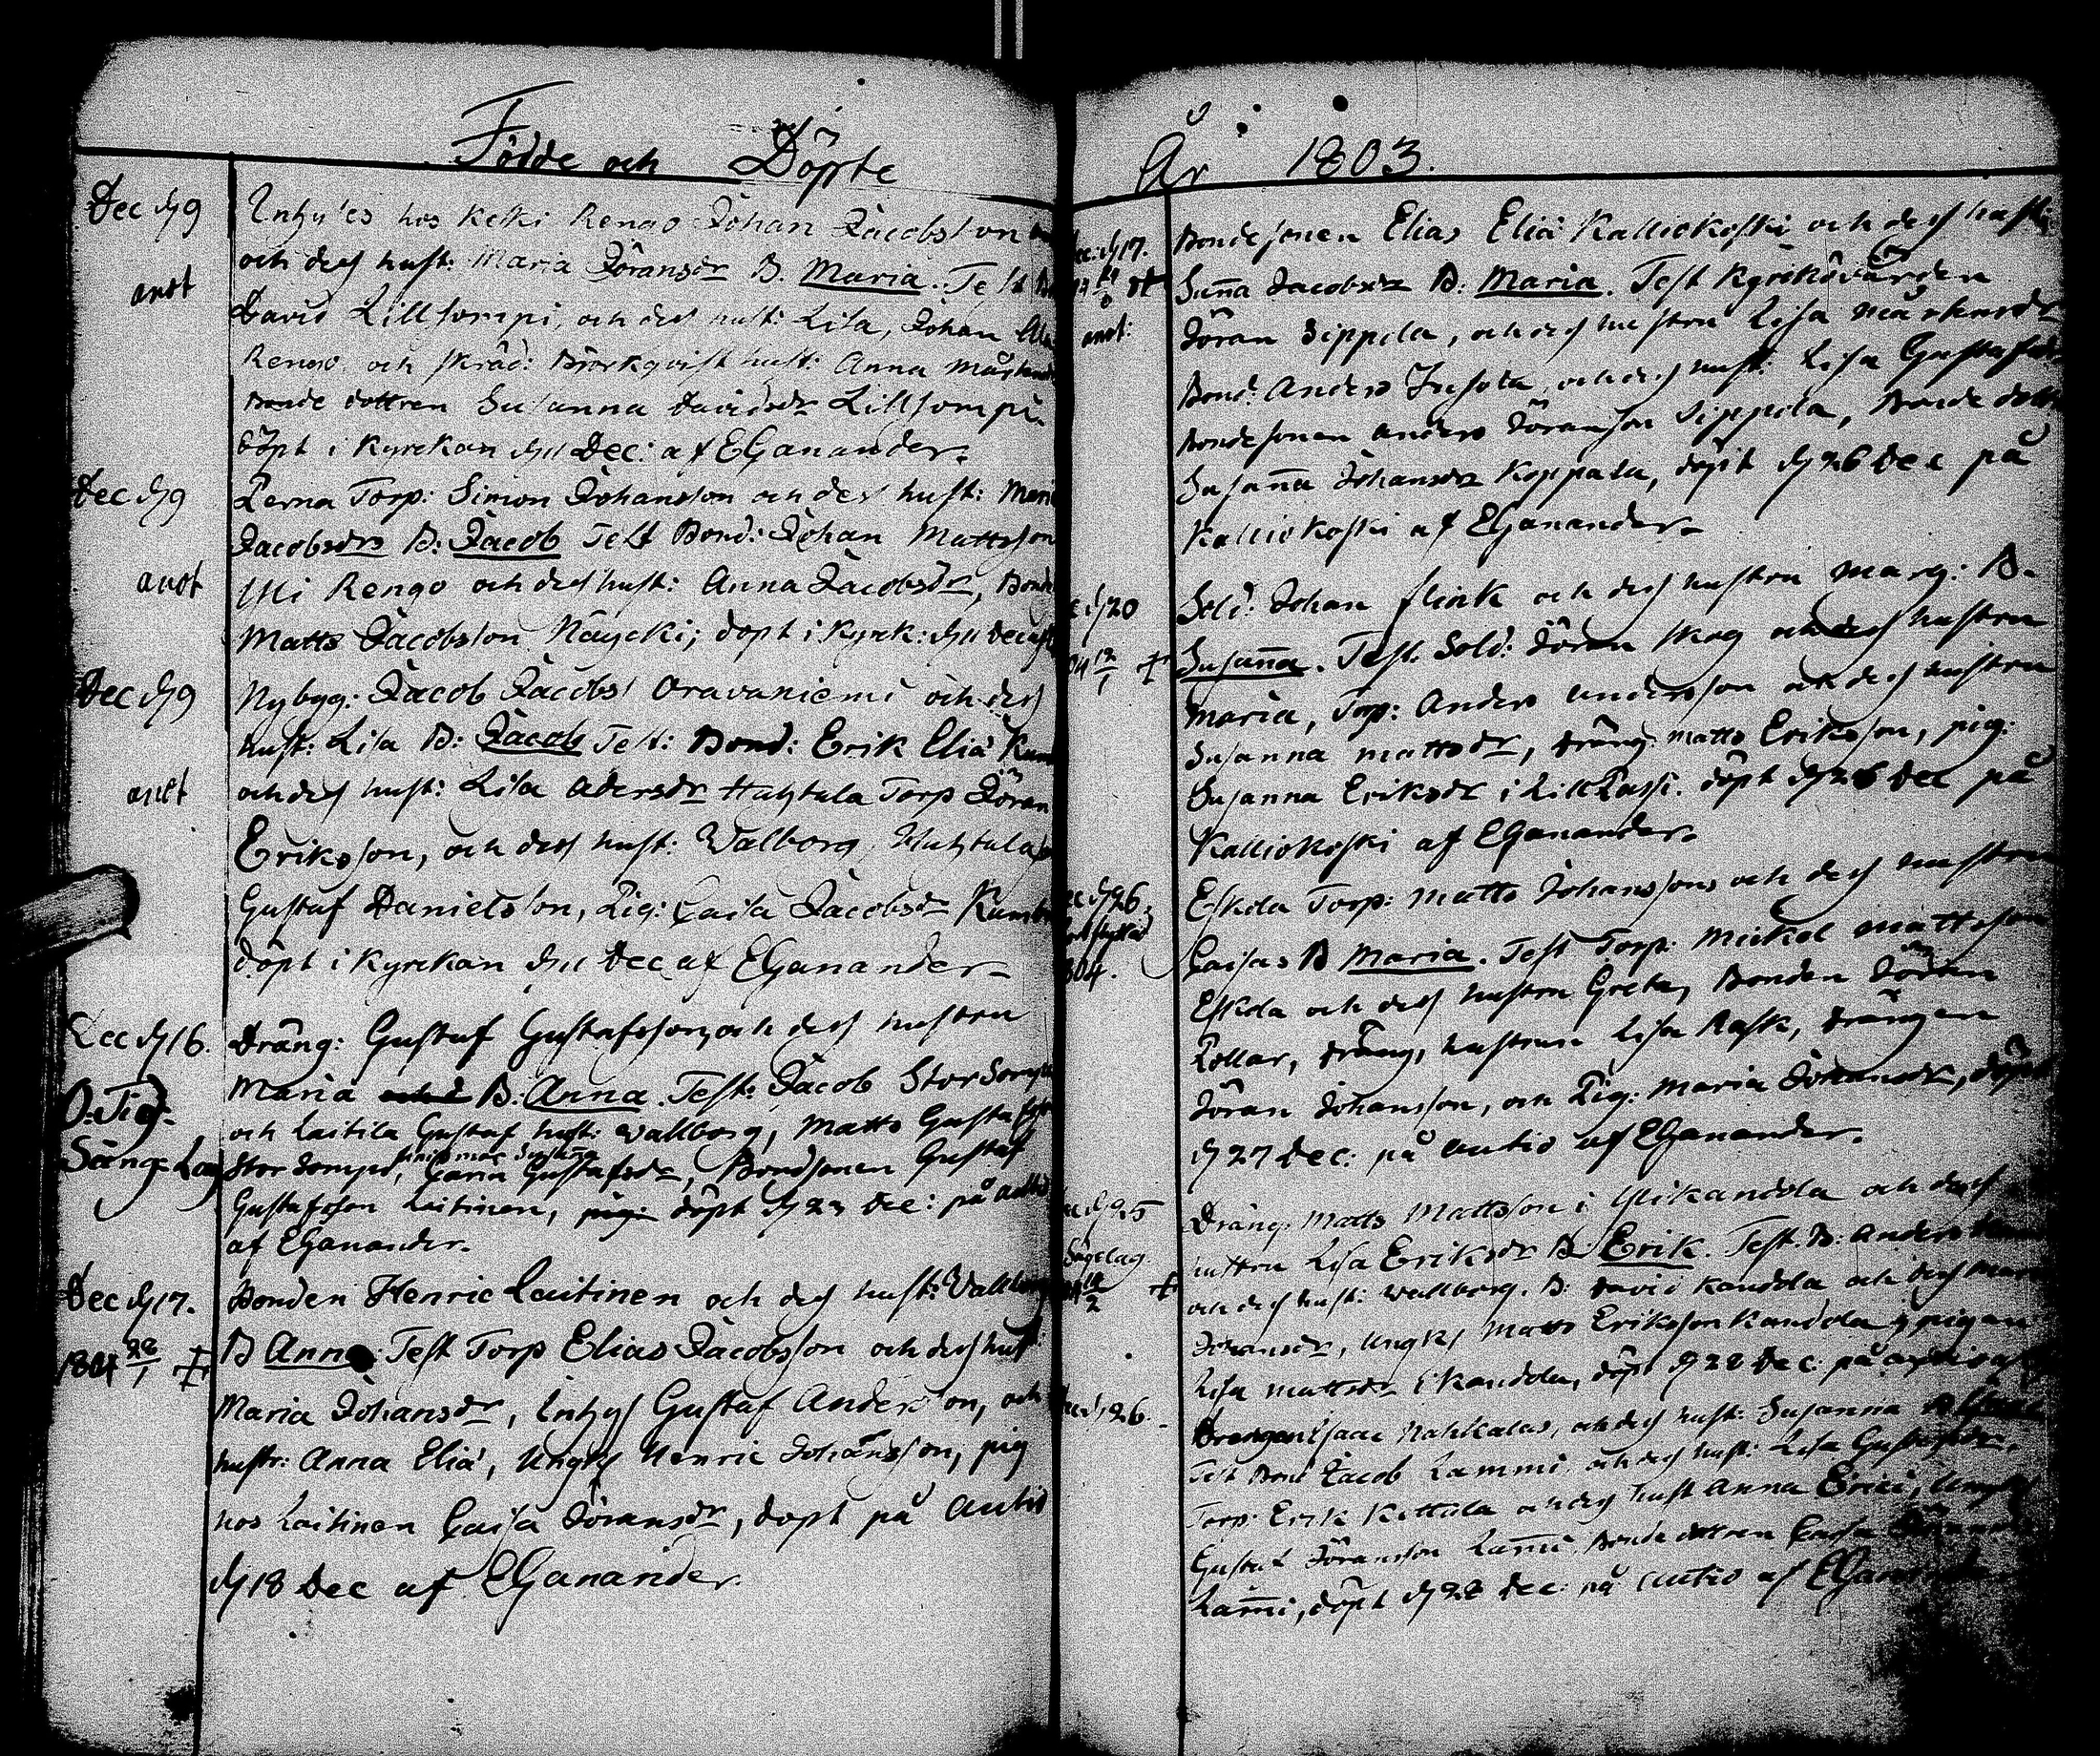 Födde och Döpte
Dec d 9 Inhys'es hos Keski Rengo Johan Jacobsson
och dess hust: Maria Jöransdr B. Maria. Test
anot
David Lillsompi, och dess hust: Lisa, Johan
Rengo och skräd: Björkqvist hust: Anna
Bonde dottren Susanna Davidsdr Lillsompi
döpt i Kyrckan d 11 Dec: af EGanander.
Dec d 9 Perna Torp: Simon Johansson och des hust: Mari
Jacobsdrs B: Jacob Test Bond: Johan Mattsson
anot Ylli Rengo och dess hust: Anna Jacobsdr, Bond
Matts Jacobsson Näycki; döpt i Kyrck: d 11 Dec af
Dec d 9 Nybyg: Jacob Jacobs' Oravaniemi och dess
hust: Lisa B: Jacob Test: Bond: Erik Eliæ
anot och dess hust: Lisa Adersdr Huhtala Torp Jöran
Eriksson, och dess hust: Walborg, Huhtala
Gustaf Danielsson, Pig: Caisa Jacobsdr
döpt i Kyrckan d 11 Dec af EGanander
Dec d 16. Dräng: Gustaf Gustafsson, och dess hustru
Maria B: Anna. Test: Jacob Storsompi
O: Tig:
och Laitila Gustaf hust: Wallborg, Matts Gustafsson
Säng-Lag Storsompi, Caria Gustafsdr, Bondsonen Gustaf
Gustafsson Laitinen, pig: döpt d 23 Dec: på Autio
af EGanander.
Dec d 17. Bonden Henric Laitinen och dess hust: Wallborg
1804 28/1 † B Anna. Test Torp Elias Jacobsson och dess hust:
Maria Johansdr, Inhys Gustaf Andersson, och
hustr: Anna Eliæ, Ungkj Henric Johansson, pig
hos Laitinen Caisa Jöransdr, döpt på Autio
d 18 Dec af EGanander.
År 1803.
Dec. d 17. Bondesonen Elias Eliæ Kalliokoski och dess hustr:
Sanna Jacobsdr B: Maria. Test Kyrkövärden
anot: Jöran Sippola, och dess hustru Lisa
Bond: Anders och dess hust: Lisa Gustafsdr
Bondesonen Anders Jöransson Sippola, Bonde dott
Susanna Johansdr Koppala, döpt d 26 Dec på
Kalliokoski af EGanander
d 20 Sold: Johan Flink och dess hustru Marg: B.
12/1 † Susanna. Test. Sold: Jöran Skog och dess hustru
Maria, Torp: Anders Andersson och dess hustru
Susanna Mattsdr, dräng: Matts Eriksson, pig:
Susanna Eriksdr i Lill döpt d 26 Dec på
Kalliokoski af EGanander.
d 26. Eskola Torp: Matts Johanssons och dess hustru
804. Caisas B Maria. Test Torp: Mickel Mattsson
Eskola och dess hustru Greta, Bonden Jöran
Pollar, dräng, hustrun Lisa Rask, drängen
Jöran Johansson, och Pig: Maria Johansdr, döpt
d 27 Dec: på Autio af EGanander.
d 25 Dräng: Matts Mattsson i Ylikandola och dess
Sängelag. hustru Lisa Eriksdr B: Erik. Test. B: Anders
† och dess hust: Wallborg. B: David Kandola och dess
Johansdr, Ungkj Matts Eriksson Kandola, pigan
Lisa Mattsdr i Kandola, döpt d 28 Dec: på Autio af
d 26. Drengen Isaac Nahkalas, och dess hust: Susanna B
Test Bond Jacob Lammi och dess hust: Lisa Gustafsdr.
Torp: Erik Kattila och dess hust Anna Erici,
Gustaf Jöransson Lammi Bonde dottren
Lammi, döpt d 28 Dec på Autio af EGanander